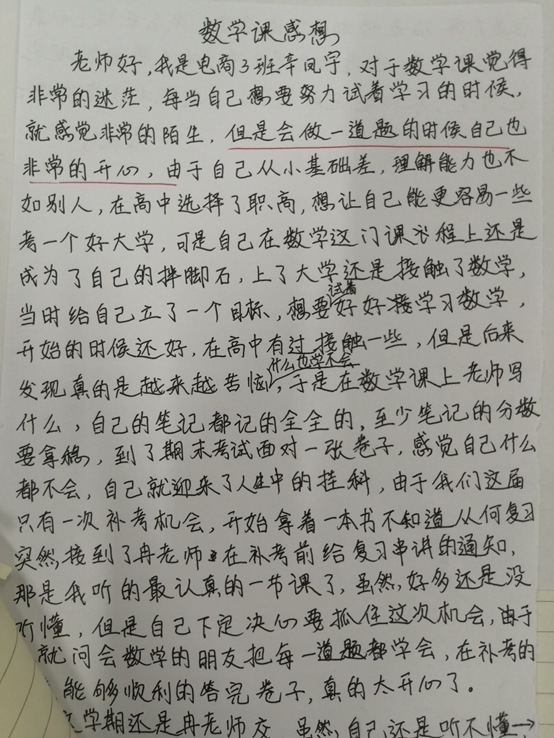 数学课感想
老师好,我是电商3班辛凤宇,对于数学课觉得
非常的迷茫,每当自己想要努力试着学习的时候,
就感觉非常的陌生,但是会做一道题的时候自己也
非常的开心,由于自己从小基础差,理解能力也不
如别人,在高中选择了职高,想让自己能更容易一些
考一个好大学,可是自己在数学这门课程上还是
成为了自己的拌脚石,上了大学还是接触了数学,
当时给自己立了一个目标,想要试着好好学习数学,
开始的时候还好,在高中有过接触一些,但是后来
发现真的是越来越苦恼,什么也学不会,于是在数学课上老师写
什么,自己的笔记都记的全全的,至少笔记的分数
要拿稳,到了期末考试面对一张卷子,感觉自己什么
都不会,自己就迎来了人生中的挂科,由于我们这届
只有一次补考机会,开始拿着一本书不知道从何复习
突然接到了冉老师在补考前给复习串讲的通知,
那是我听的最认真的一节课了,虽然,好多还是没
听懂,但是自己下定决心要抓住这次机会,由于
就问会数学的朋友把每一道题都学会,在补考的
能够顺利的答完卷子,真的太开心了。
学期还是冉老师交,虽然,自己还是听不懂→